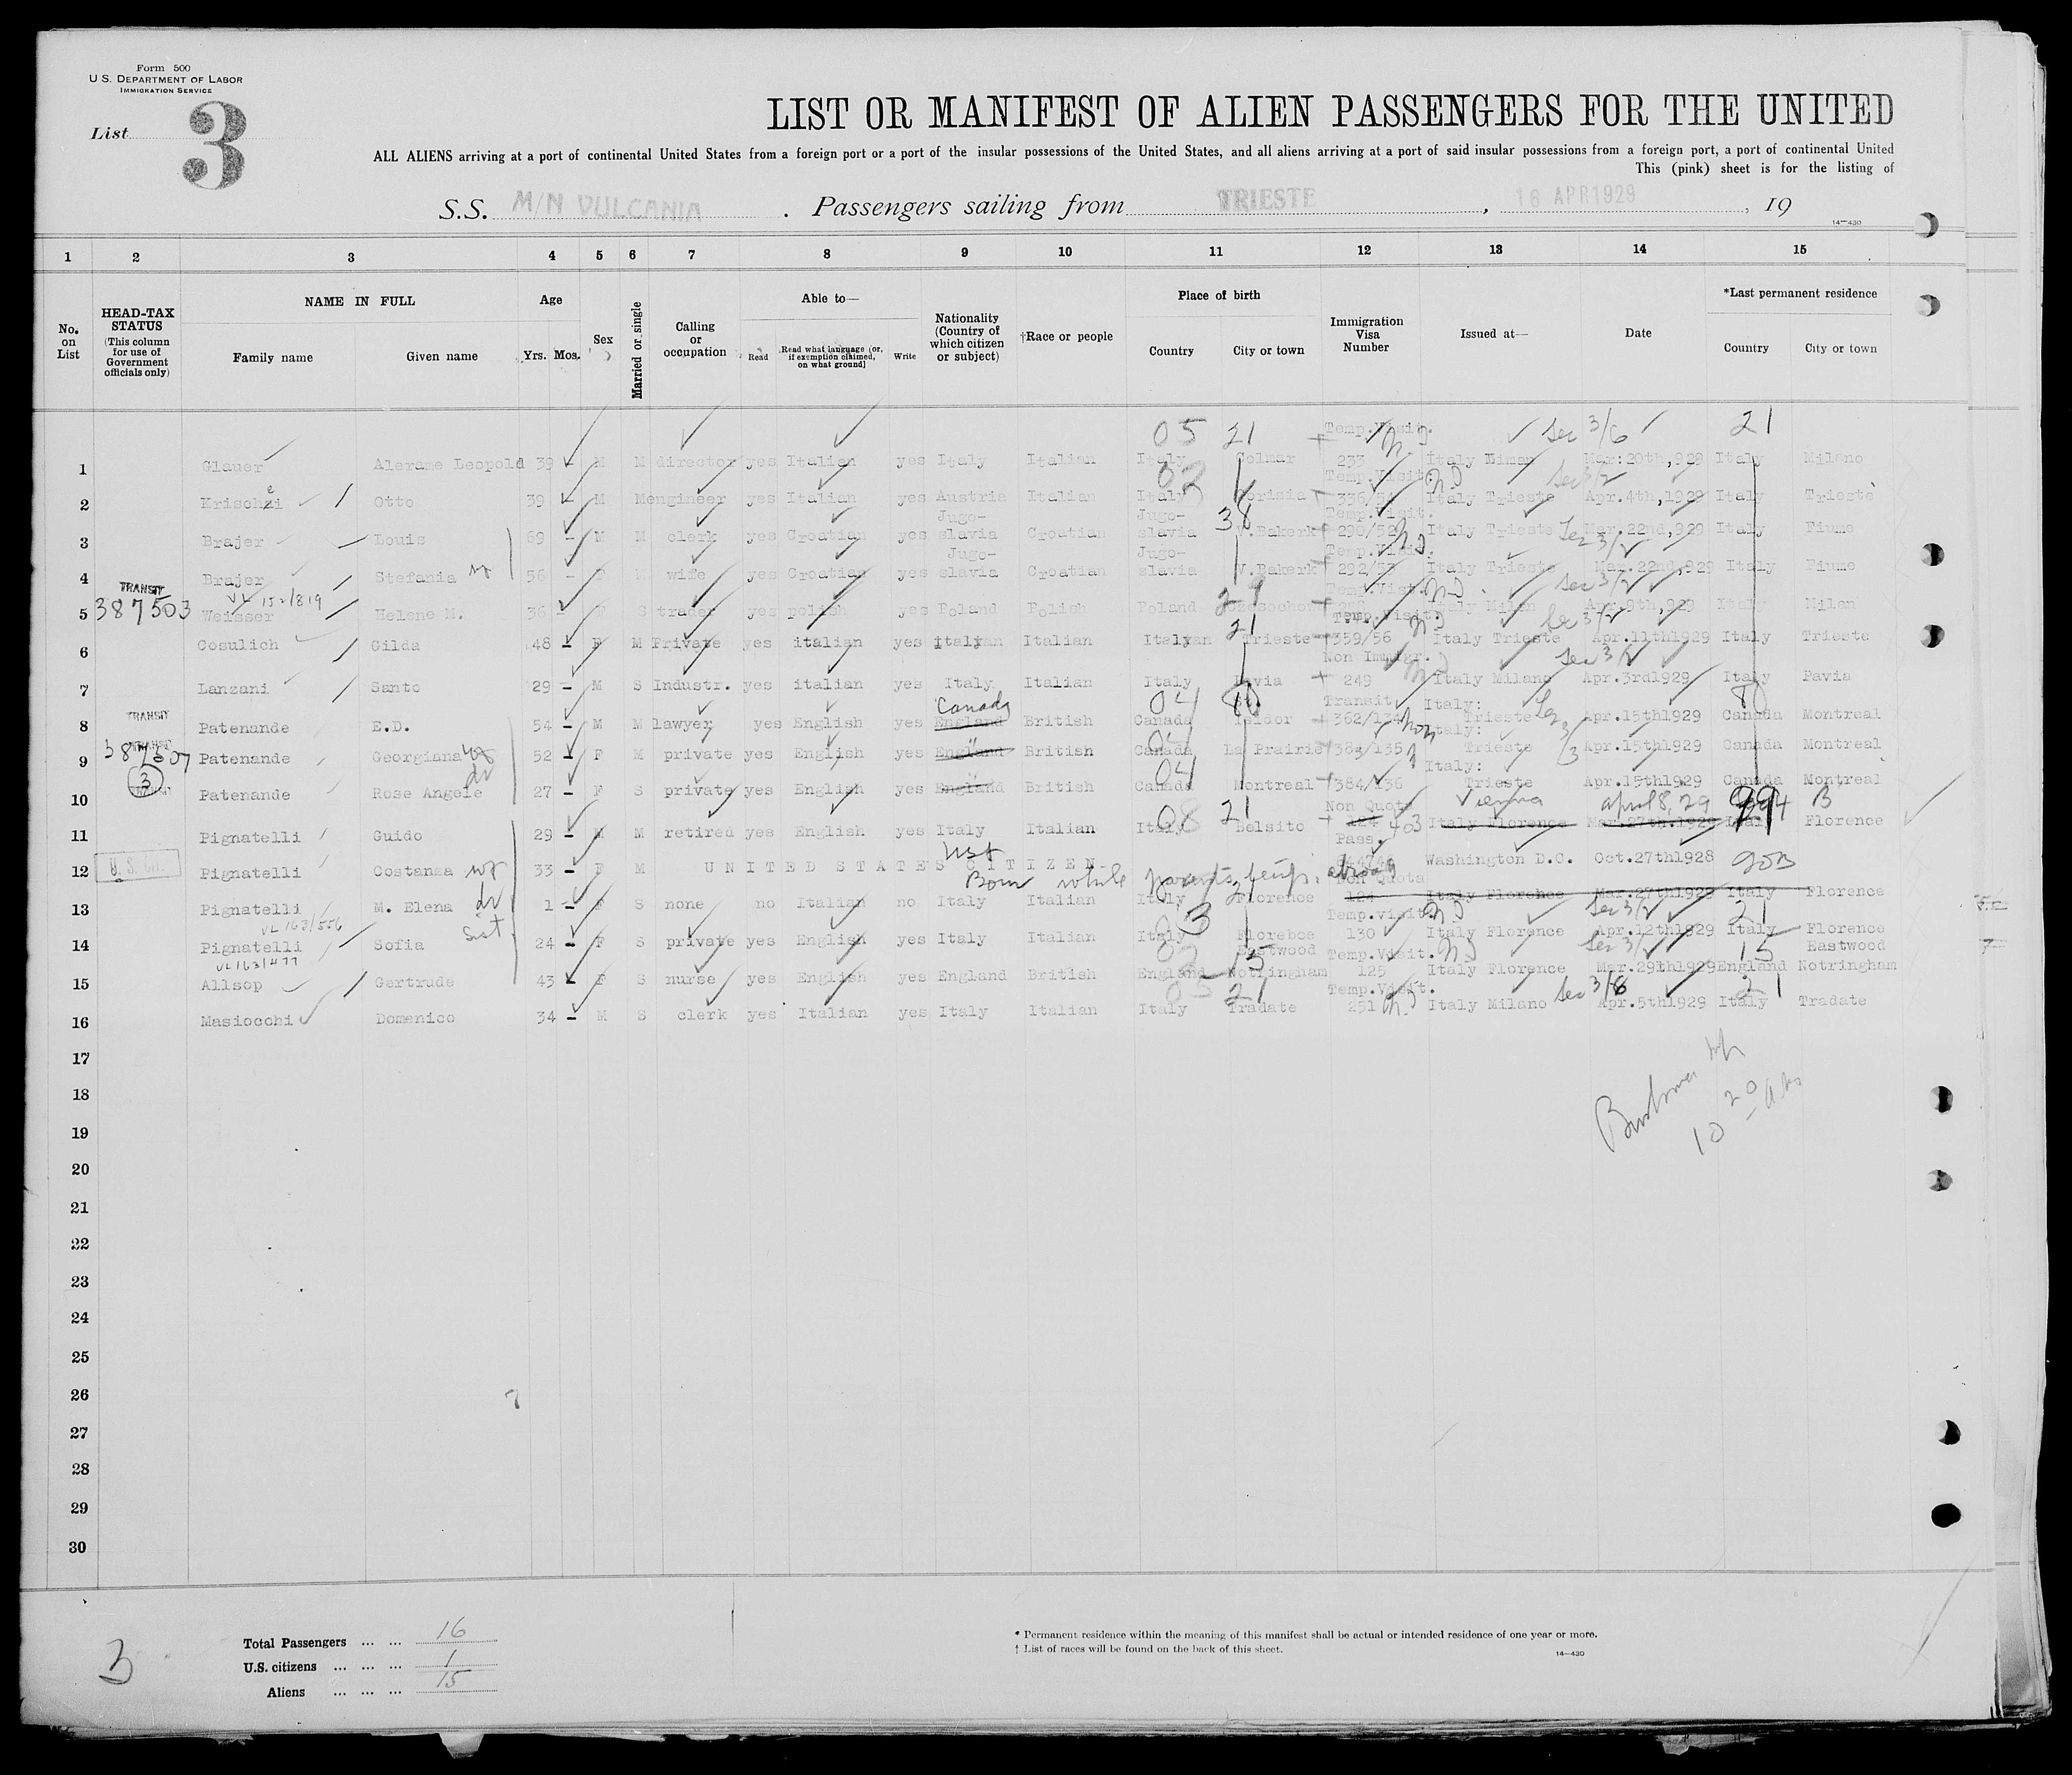 Form 500
U.S. DEPARTMENT OF LABOR
IMMIGRATION SERVICE
List 3
LIST OR MANIFEST OF ALIEN PASSENGERS FOR THE UNITED
ALL ALIENS arriving at a port of continental United States from a foreign port or a port of the insular possessions of the United States, and all aliens arriving at a port of said insular possessions from a foreign port, a port of continental United
This (pink) sheet is for the listing of
S.S. M/N VULCANIA . Passengers sailing from TRIESTE , 16 APR 1929 , 19
14—430
1 2 3 4 5 6 7 8 9 10 11 12 13 14 15
No. on List
HEAD-TAX STATUS (This column for use of Government officials only)
NAME IN FULL
Family name Given name
Age
Yrs. Mos.
Sex
Married or single
Calling or occupation
Able to—
Read Read what language [or, if exemption claimed, on what ground] Write
Nationality (Country of which citizen or subject)
†Race or people
Place of birth
Country City or town
Immigration Visa Number
Issued at—
Date
*Last permanent residence
Country City or town
05 21 Temp.Visit. Sec 3/6 21
1 Glauer Alerame Leopold 39 - M M director yes Italian yes Italy Italian Italy Colmar 233 Italy Mar:20th,929 Italy Milano
Temp.Visit. Sec 3/2
2 Otto 39 - M M engineer yes Italian yes Austria Italian Italy 336/54 Italy Trieste Apr.4th,1929 Italy Trieste
Jugo- Jugo- 38 Temp.Visit.
3 Brajer Louis 69 - M M clerk yes Croatian yes slavia Croatian slavia V.Bakerk 290/52 Italy Trieste Mar.22nd,929 Italy Fiume
Jugo- Jugo- Temp.Visit. Sec 3/2
4 Brajer Stefania 56 - F M wife yes Croatian yes slavia Croatian slavia V.Bakerk 292/53 Italy Trieste Mar.22nd,929 Italy Fiume
TRANSIT VL 152/819 29 Temp.Visit. Sec 3/2
5 387503 Weisser Helene M. 36 - F S trader yes polish yes Poland Polish Poland Italy Milan Apr.9th,929 Italy Milan
21 Temp.Visit. Sec 3/2
6 Cosulich Gilda 48 - F M Private yes italian yes Italian Italian Trieste 359/56 Italy Trieste Apr.11th1929 Italy Trieste
Non Immigr. Sec 3/2
7 Lanzani Santo 29 - M S Industr. yes italian yes Italy Italian Italy Pavia 249 Italy Milano Apr.3rd1929 Italy Pavia
TRANSIT Canada 04 80 Transit Italy: 80
8 Patenande E.D. 54 - M M lawyer yes English yes England British Canada 362/124 Trieste Apr.15th1929 Canada Montreal
TRANSIT 04 Italy:
9 387507 Patenande Georgiana 52 - F M private yes English yes England British Canada La Prairie 383/135 Trieste Apr.15th1929 Canada Montreal
(3) TRANSIT 04 Italy:
10 Patenande Rose Angele 27 - F S private yes English yes England British Canada Montreal 384/136 Trieste Apr.15th1929 Canada Montreal
08 21 Non Quota Vienna April 8, 29
11 Pignatelli Guido 29 - M M retired yes English yes Italy Italian Italy Belsito 124 403 Italy Florence Mar.27th.1929 Italy Florence
Pass.
12 U.S. Cit. Pignatelli Costanza 33 - F M UNITED STATES CITIZEN Washington D.C. Oct.27th1928
Born while parents temp. abroad
Non Quota
13 Pignatelli M. Elena 1 - F S none no Italian no Italy Italian Italy Florence 124 Italy Florence Mar.27th1929 Italy Florence
VL 163/556 Sist. Temp.visit. Sec 3/2 21
14 Pignatelli Sofia 24 - F S private yes English yes Italy Italian Italy Florebce 130 Italy Florence Apr.12th1929 Italy Florence
VL 163/477 Eastwood Temp.Visit. Sec 3/2 15 Eastwood
15 Allsop Gertrude 43 - F S nurse yes English yes England British England Notringham 125 Italy Florence Mar.29th1929 England Notringham
05 21 Temp.Visit. Sec 3/6 21
16 Masiocchi Domenico 34 - M S clerk yes Italian yes Italy Italian Italy Tradate 251 Italy Milano Apr.5th1929 Italy Tradate
17
18
19
20
21
22
23
24
25
26
27
28
29
30
3
Total Passengers ... ... 16
U.S. citizens ... ... ... 1
Aliens ... ... ... 15
* Permanent residence within the meaning of this manifest shall be actual or intended residence of one year or more.
† List of races will be found on the back of this sheet.
14—430